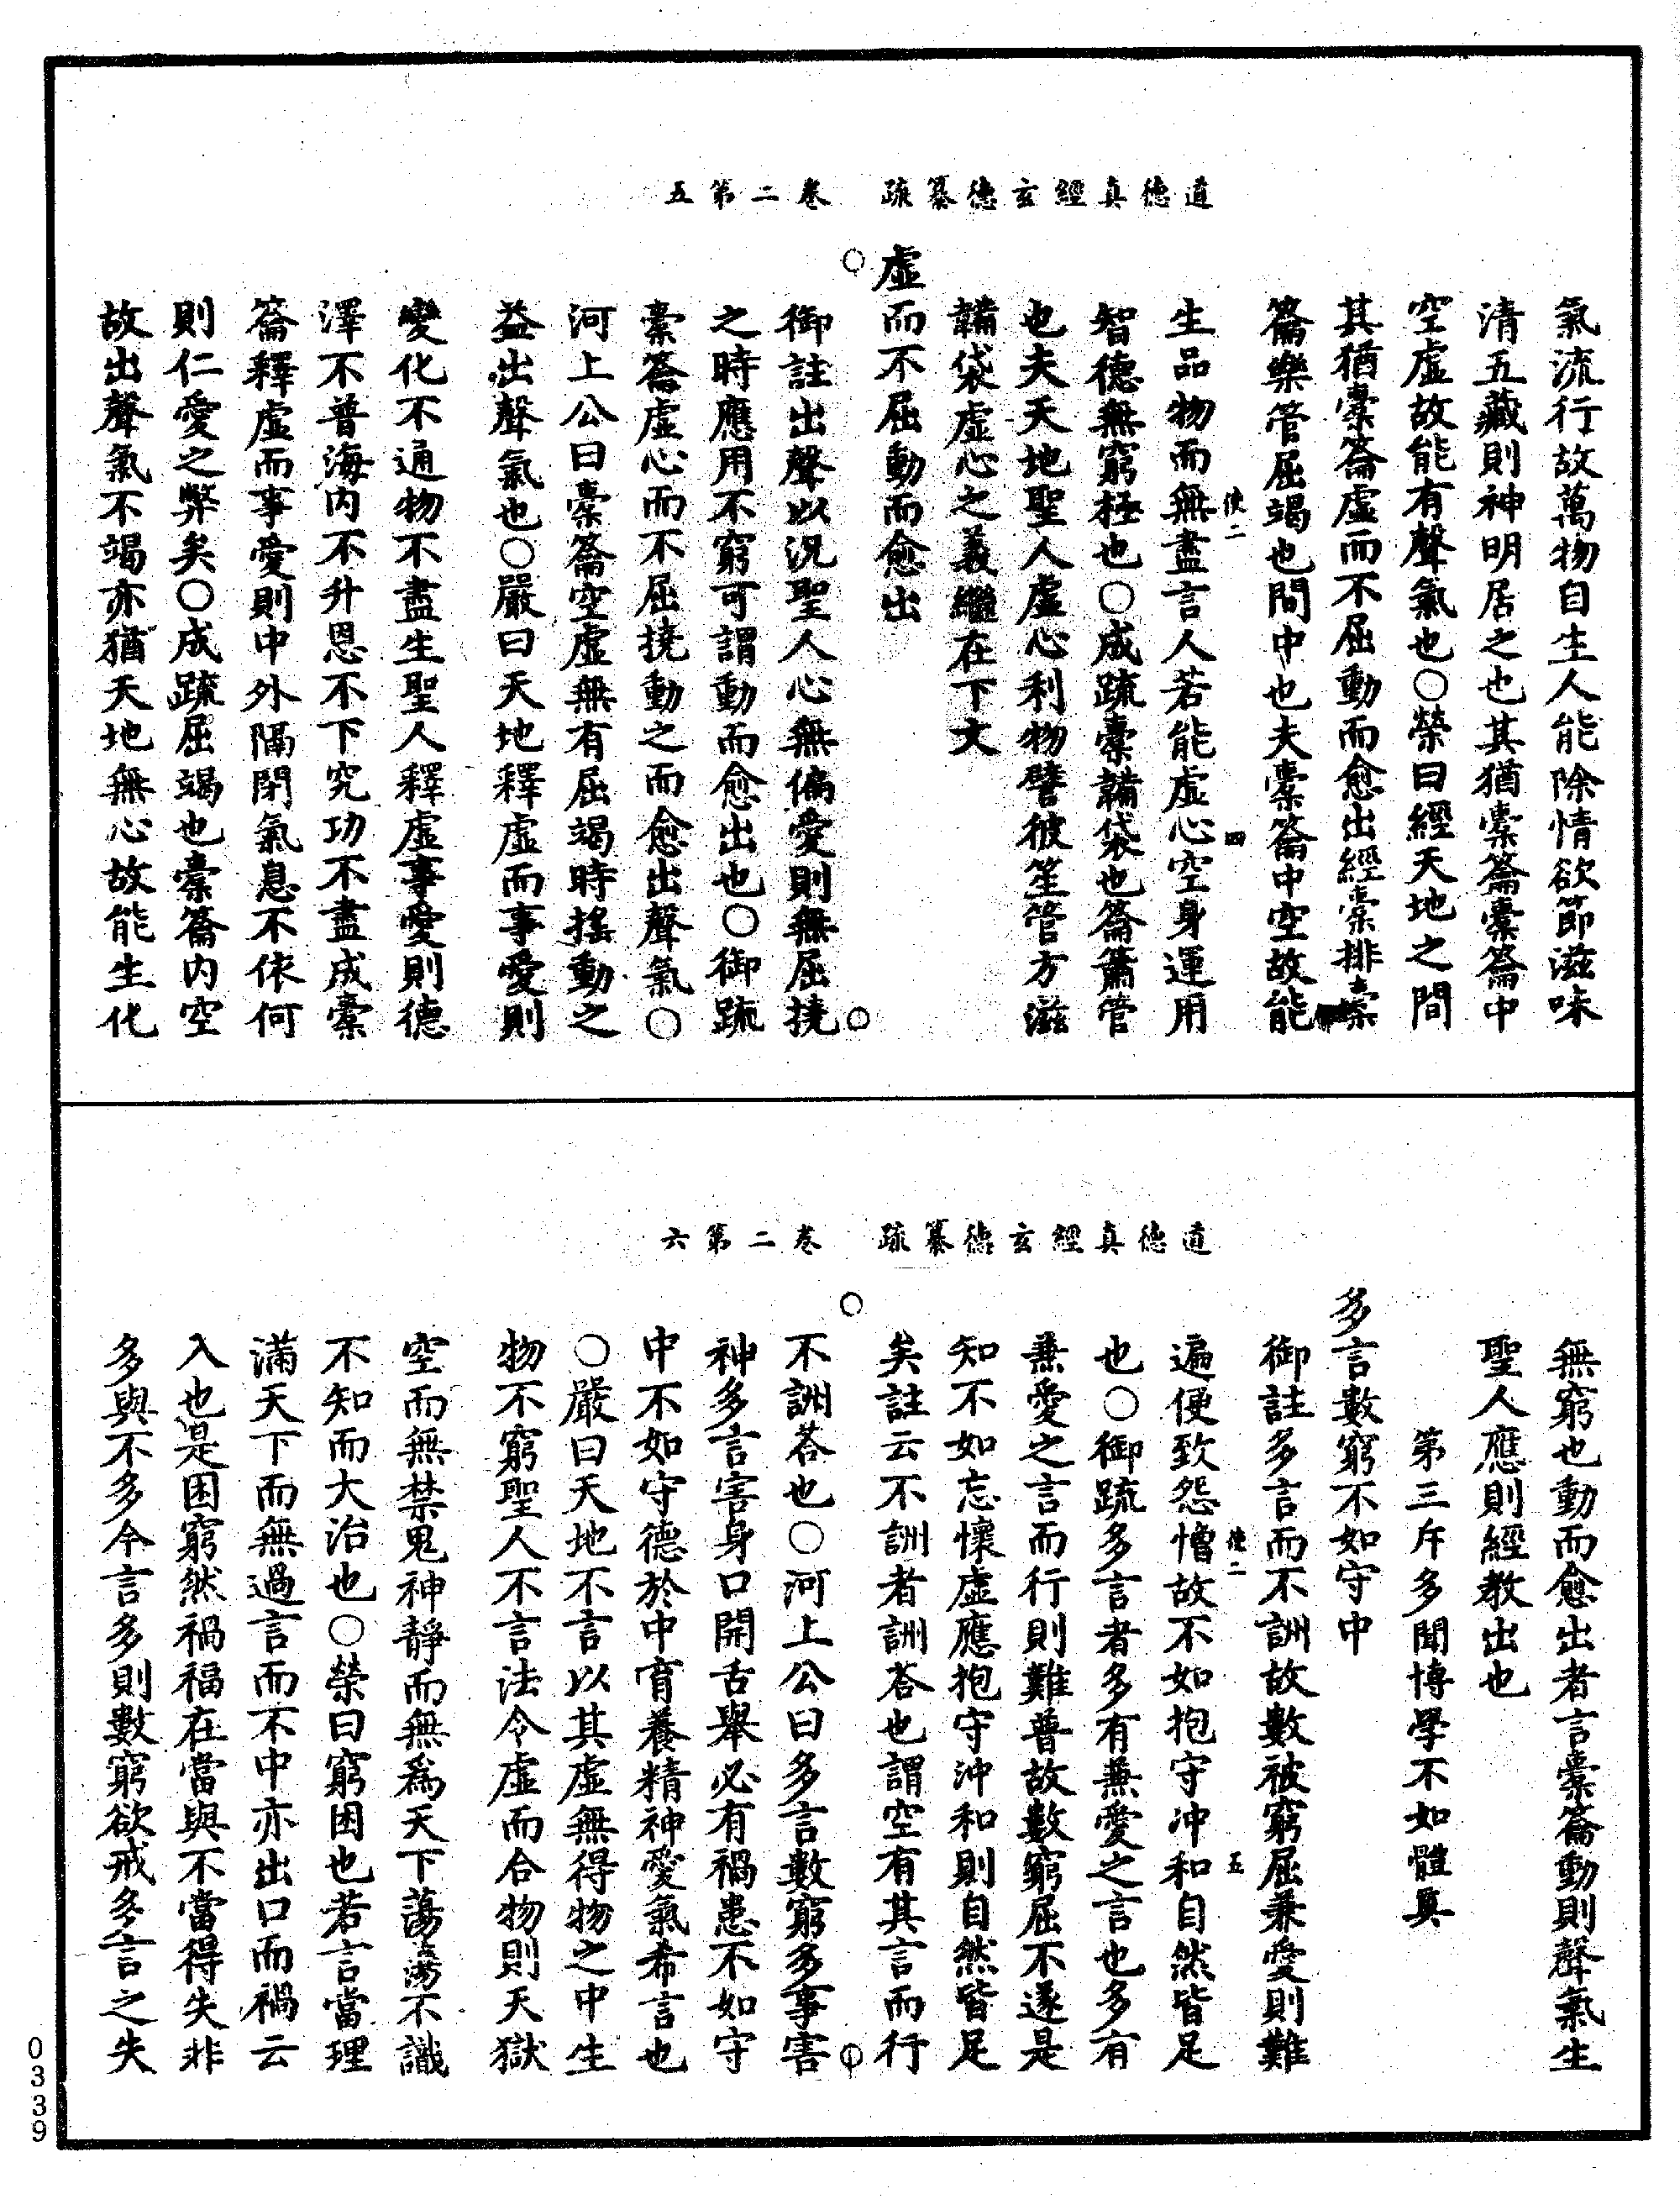 道德真經玄德纂疏　卷二第五
氣流行故萬物自生人能除情欲節滋味
清五藏則神明居之也其猶橐籥橐籥中
空虛故能有聲氣也○榮曰經天地之間
其猶橐籥虛而不屈動而愈出經橐排橐
籥樂管屈竭也間中也夫橐籥中空故能
使二　四
生品物而無盡言人若能虛心空身運用
智德無窮極也○成疏橐韛袋也籥簫管
也夫天地聖人虛心利物譬彼笙管方滋
韛袋虛心之義繼在下文
虛而不屈動而愈出
御註出聲以況聖人心無偏愛則無屈撓
之時應用不窮可謂動而愈出也○御疏
橐籥虛心而不屈撓動之而愈出聲氣○
河上公曰橐籥空虛無有屈竭時搖動之
益出聲氣也○嚴曰天地釋虛而事愛則
變化不通物不盡生聖人釋虛事愛則德
澤不普海內不升恩不下究功不盡成橐
籥釋虛而事愛則中外隔閉氣息不俅何
則仁愛之弊矣○成疏屈竭也橐籥內空
故出聲氣不竭亦猶天地無心故能生化
道德真經玄德纂疏　卷二第六
無窮也動而愈出者言橐籥動則聲氣生
聖人應則經教出也
第三斥多聞博學不如體真
多言數窮不如守中
御註多言而不詶故數被窮屈兼愛則難
使二　五
遍便致怨憎故不如抱守沖和自然皆足
也○御疏多言者多有兼愛之言也多有
兼愛之言而行則難普故數窮屈不遂是
知不如忘懷虛應抱守沖和則自然皆足
矣註云不詶者詶荅也謂空有其言而行
不詶荅也○河上公曰多言數窮多事害
神多言害身口開舌舉必有禍患不如守
中不如守德於中育養精神愛氣希言也
○嚴曰天地不言以其虛無得物之中生
物不窮聖人不言法令虛而合物則天獄
空而無禁鬼神靜而無為天下蕩蕩不識
不知而大治也○榮曰窮困也若言當理
滿天下而無過言而不中亦出口而禍云
入也是困窮然禍福在當與不當得失非
多與不多今言多則數窮欲戒多言之失
0339